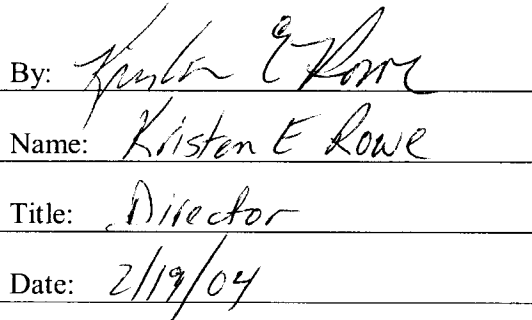 By: Kristen E Rowe
Name: Kristen E Rowe
Title: Director
Date: 2/19/04